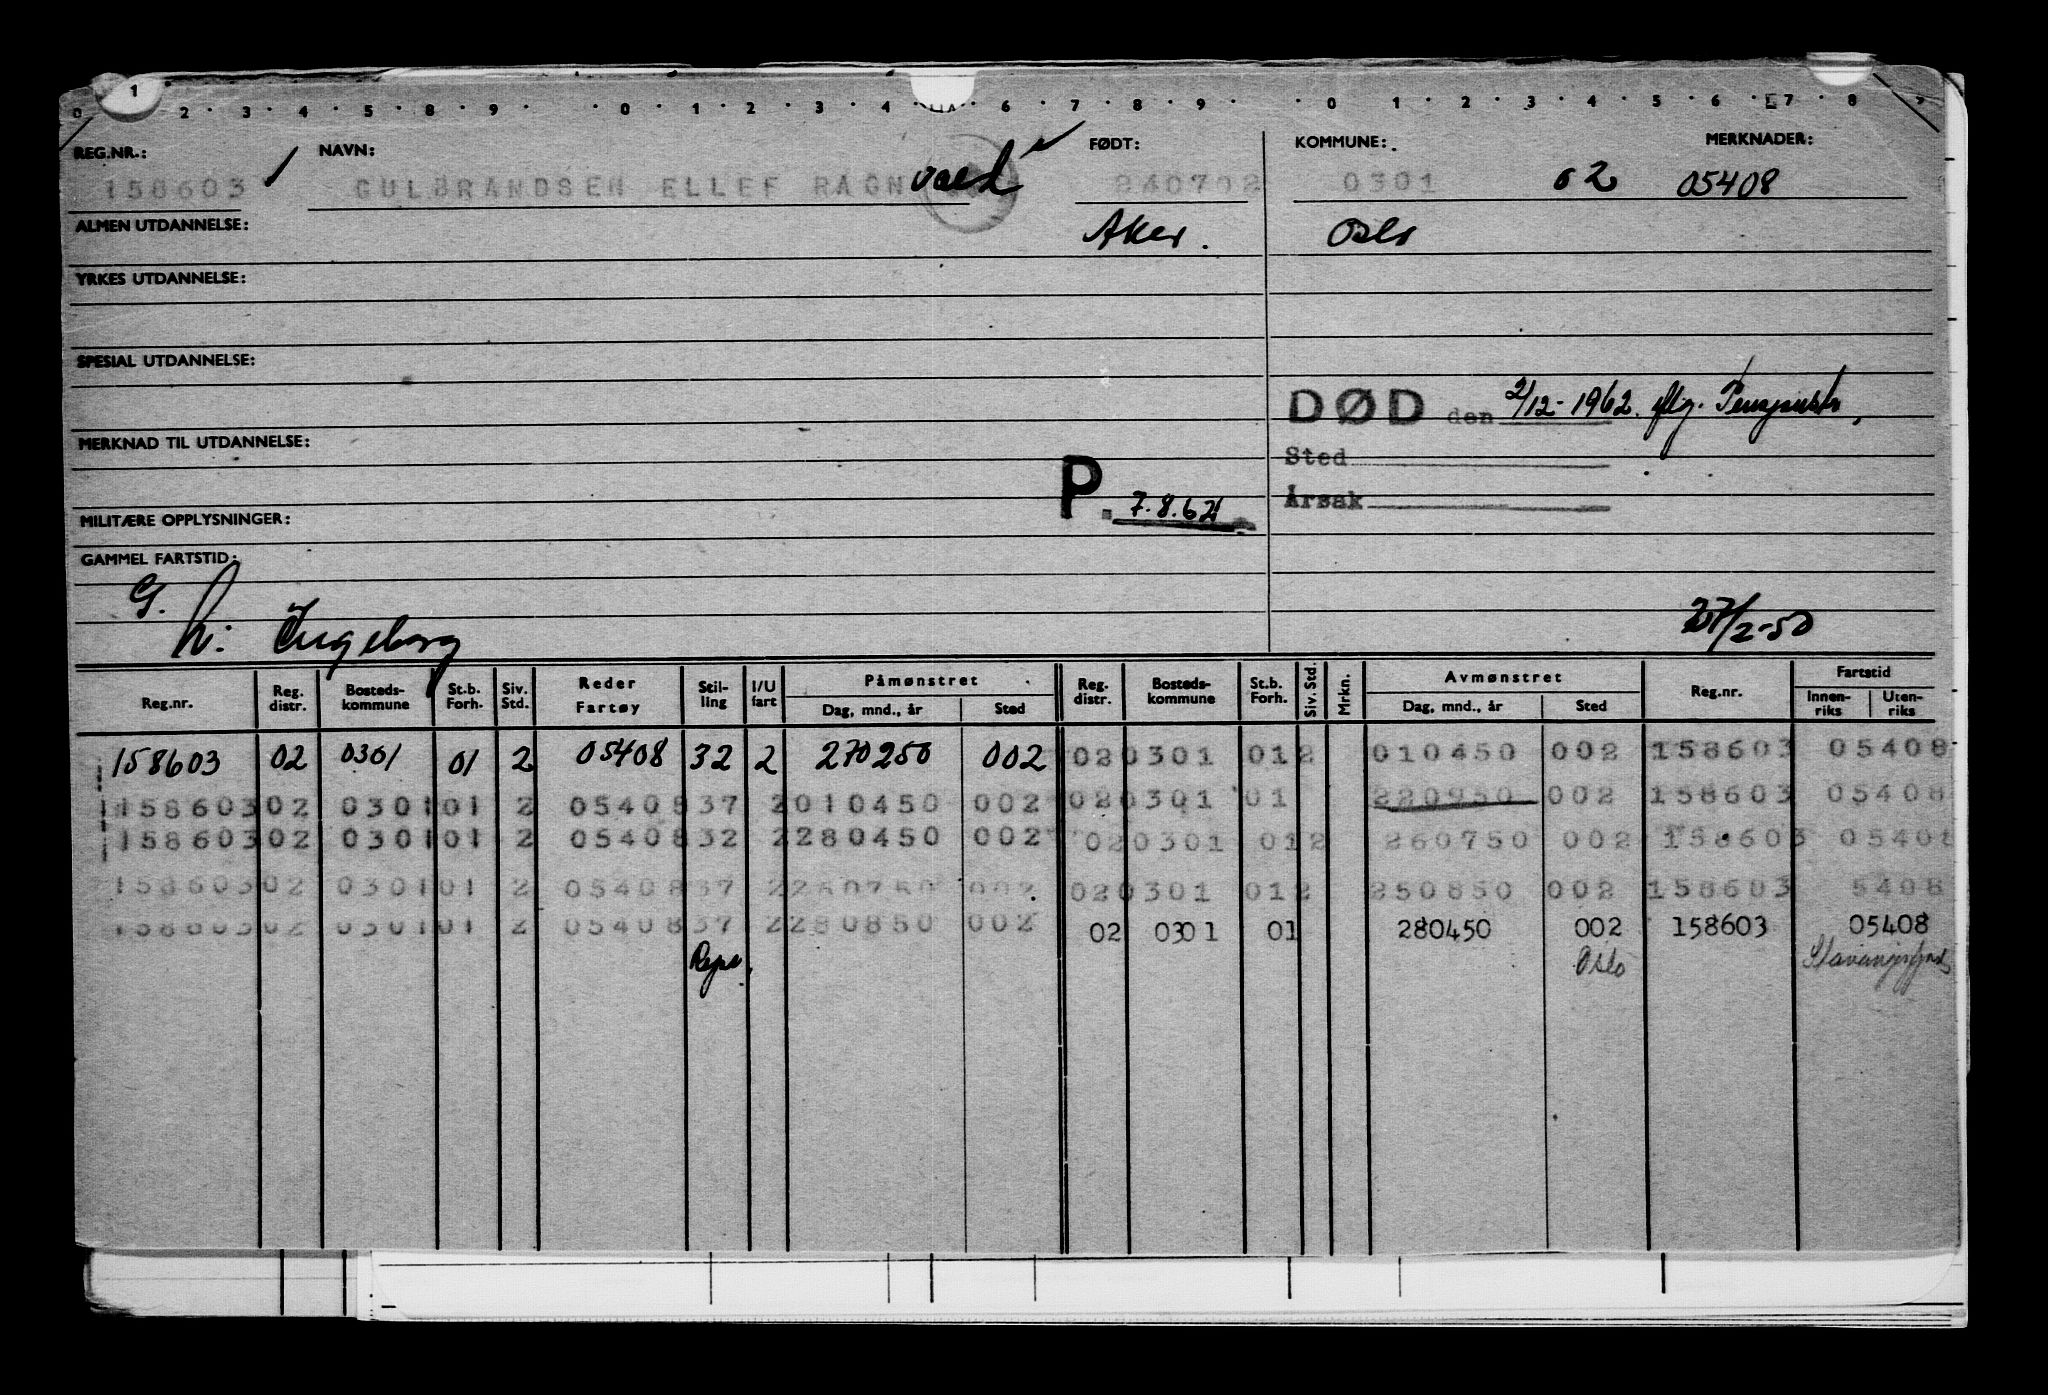 1 2 3 4 5 8 9 0 1 2 3 4 6 7 8 9 0 1 2 3 4 5 6 7 8
REG.NR.: NAVN: FØDT: KOMMUNE: MERKNADER:
158603 GULBRANDSEN ELLEF RAGNvald 240702 0301 02 05408
ALMEN UTDANNELSE: Aker. Oslo
YRKES UTDANNELSE:
SPESIAL UTDANNELSE:
DØD den 2/12-1962. flg.
MERKNAD TIL UTDANNELSE: Sted
P. 7.8.62 Årsak
MILITÆRE OPPLYSNINGER:
GAMMEL FARTSTID:
G.
h: Ingeborg 27/2-50
Reg.nr. Reg. distr. Bosteds-kommune St.b. Forh. Siv. Std. Reder Fartøy Stil-ling I/U fart Påmønstret Dag, mnd., år Sted Reg. distr. Bosteds-kommune St.b. Forh. Siv. Std. Mrkn. Avmønstret Dag, mnd., år Sted Reg.nr. Fartstid Innen-riks Uten-riks
158603 02 0301 01 2 05408 32 2 270250 002 02 0301 01 2 010450 002 158603 05408
158603 02 0301 01 2 05408 37 2 010450 002 02 0301 01 220950 002 158603 05408
158603 02 0301 01 2 05408 32 2 280450 002 02 0301 01 2 260750 002 158603 05408
158603 02 0301 01 2 05408 37 2 280750 002 02 0301 01 2 250850 002 158603 5408
158603 02 0301 01 2 05408 37 2 280850 002 02 0301 01 280450 002 158603 05408
Repr. Oslo Stavangerfjord